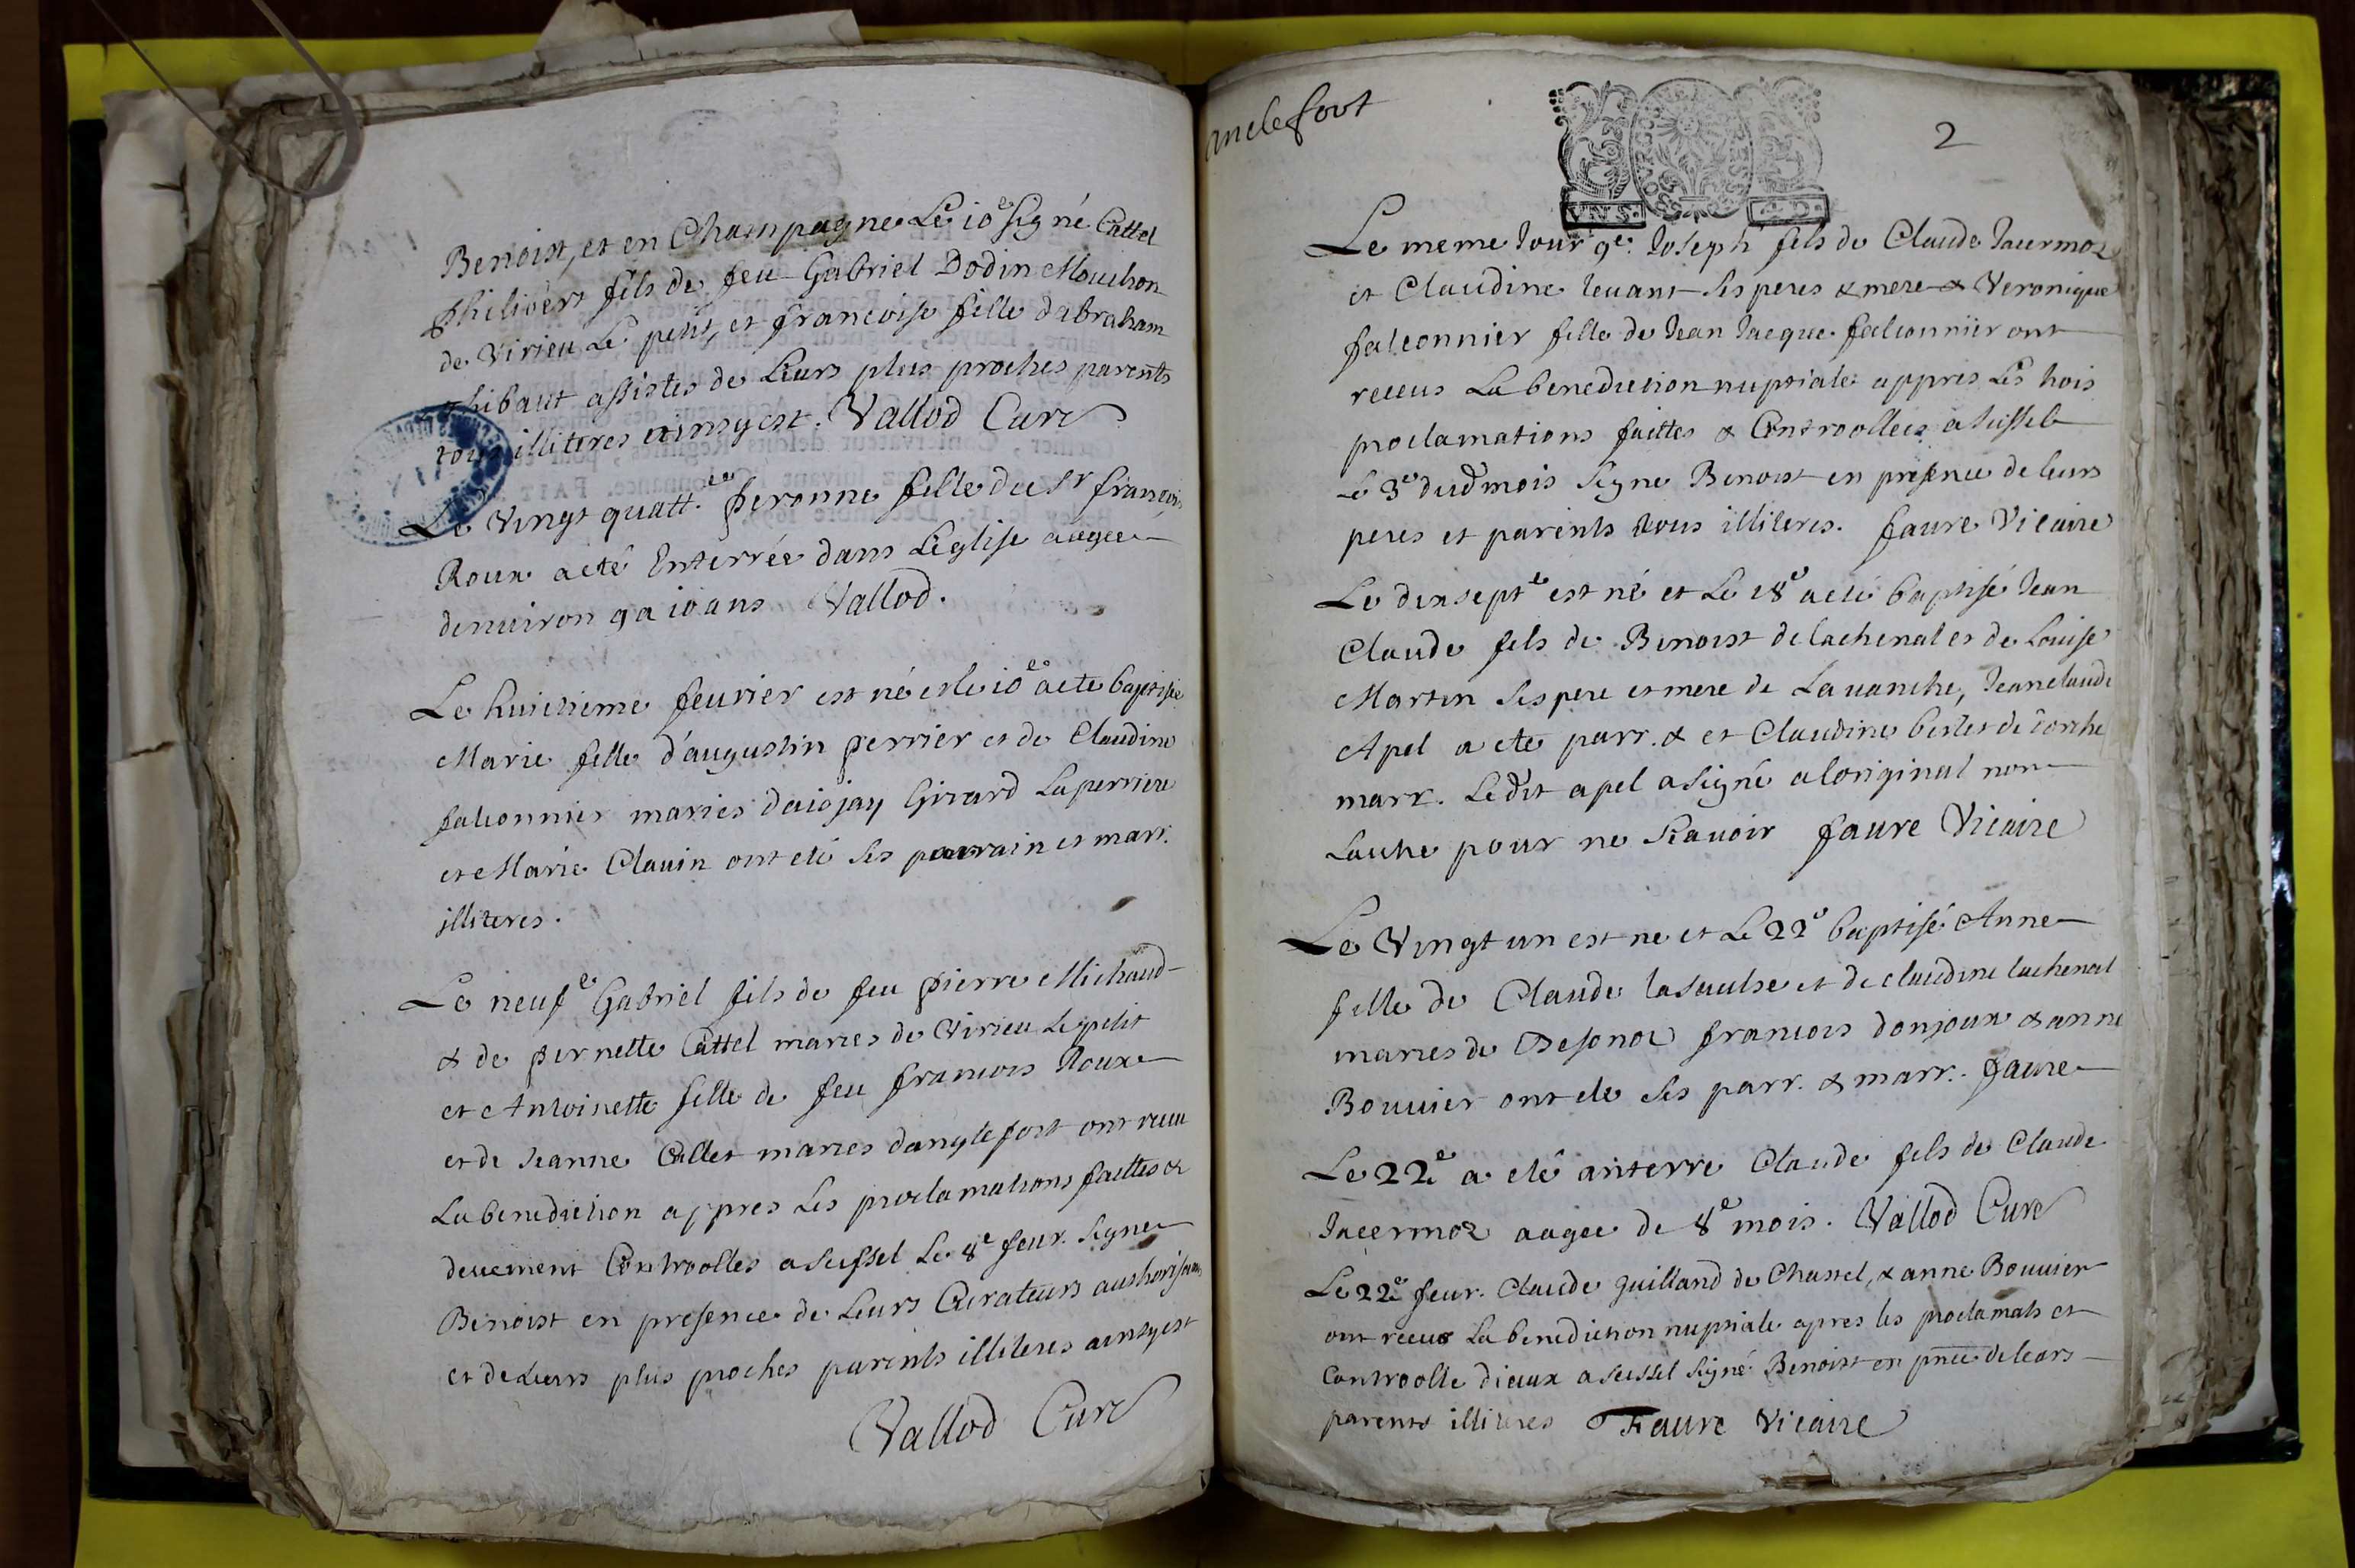 Benoist, et en Champagne Le 10e signé Cattel
philibert fils de feu Gabriel Dodin Mouchon
de Virieu Le petit, et francoise fille dabraham
thibaut assistes de Leurs plus proches parents
tous illiteres ainsy est. Vallod Curé
Le Vingt quatt.e peronne fille du Sr francois
Roux a eté Enterrée dans L'eglise aagee
denuiron 9 a 10 ans Vallod.
Le huictieme feurier est né et le 10e a ete baptisée
Marie fille d'augustin perrier et de Claudine
falconnier maries Girard Laperriere
et Marie Clauin ont eté ses parrain et marr.
illiteres.
Le neufe Gabriel fils de feu pierre Michaud
& de pernette Cattel maries de Virieu Le petit
et Antoinette fille de feu francois Roux
et de Jeanne Callet maries danglefort ont receu
La benediction appres Les proclamations faittes &
deuement Controolles a seissel Le 8e feur. signe
Benoist en presence de Leurs Curateurs authorisans
et de Leurs plus proches parents illiteres ainsy est
Vallod Curé
anclefort
2
VN S. 4 D.
BOVRG BRESSE
Le meme Jour 9e. Joseph fils de Claude Jacermoz
et Claudine leuant ses peres & mere & Veronique
falconnier fille de Jean Jacque falconnier ont
receus La benediction nuptiale appres Les trois
proclamations faittes & Controollees a seissel
Le 3e dud mois signe Benoist en presence de leurs
peres et parents tous illiteres. faure Vicaire
Le dixsepte est né et Le 18e a eté baptisé Jean
Claude fils de Benoist delachenal et de Louise
Martin ses pere et mere de Lauanche, Jeanclaude
Apel a ete parr. & et Claudine de
marr. Ledit apel a signé a loriginal non
Lautre pour ne scauoir faure Vicaire
Le Vingt un est ne et Le 22e baptisé Anne
fille de Claude lasaulse et de claudine lachenal
maries de francois donjoux & anne
Bouuier ont ete ses parr. & marr. faure
Le 22e a eté anterre Claude fils de Claude
Jacermoz aagee de 8e mois. Vallod Curé
Le 22e feur. Claude guilland de Chastel, & anne Bouuier
ont receus La benediction nuptiale apres les proclamats et
Controolle diceux a seissel signé Benoist en pnce de leurs
parents illiteres Faure Vicaire